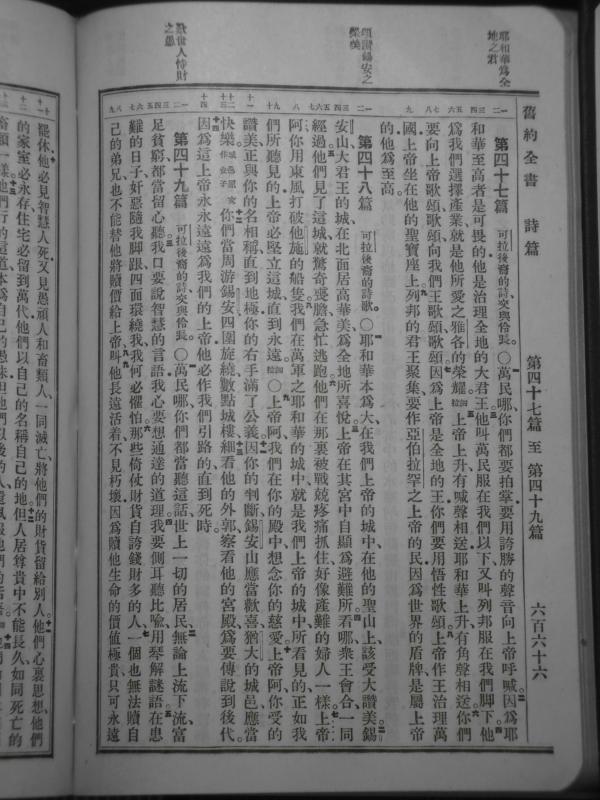 舊約全書 詩篇 第四十七篇 至 第四十九篇 六百六十六
耶和華爲全
地之君
頌讚錫安之
榮美
世人恃財
之愚
第四十七篇 可拉後裔的詩交與伶長 〇萬民哪你們都要拍掌要用誇勝的聲音向上帝呼喊因爲耶
和華至高者是可畏的他是治理全地的大君王他叫萬民服在我們以下又叫列邦服在我們脚下他
爲我們選擇產業就是他所愛之雅各的榮耀細拉上帝上升有喊聲相送耶和華上升有角聲相送你們
要向上帝歌頌歌頌向我們王歌頌歌頌因爲上帝是全地的王你們要用悟性歌頌上帝作王治理萬
國上帝坐在他的聖寶座上列邦的君王聚集要作亞伯拉罕之上帝的民因爲世界的盾牌是屬上帝
的他爲至高。
第四十八篇 可拉後裔的詩歌 〇耶和華本爲大在我們上帝的城中在他的聖山上該受大讚美錫
安山大君王的城在北面居高華美爲全地所喜悅上帝在其宮中自顯爲避難所看哪衆王會合一同
經過他們見了這城就驚奇喪膽急忙逃跑他們在那裏被戰兢疼痛抓住好像產難的婦人一樣上帝
阿你用東風打破他施的船隻我們在萬軍之耶和華的城中就是我們上帝的城中所看見的正如我
們所聽見的上帝必堅立這城直到永遠細拉上帝阿我們在你的殿中想念你的慈愛上帝阿你受的
讚美正與你的名相稱直到地極你的右手滿了公義因你的判斷錫安山應當歡喜猶大的城邑應當
快樂城邑原文作女子你們當周游錫安四圍旋繞數點城樓細看他的外郭察看他的宮殿爲要傳說到後代
因爲這上帝永永遠遠爲我們的上帝他必作我們引路的直到死時。
第四十九篇 可拉後裔的詩交與伶長 〇萬民哪你們都當聽這話世上一切的居民無論上流下流富
足貧窮都當留心聽我口要說智慧的言語我心要想通達的道理我要側耳聽比喻用琴解謎語在患
難的日子奸惡隨我脚跟四面環繞我我何必懼怕那些倚仗財貨自誇錢財多的人一個也無法贖自
己的弟兄也不能替他將贖價給上帝叫他長遠活着不見朽壞因爲贖他生命的價值極貴只可永遠
罷休他必見智慧人死又見愚頑人和畜類人一同滅亡將他們的財貨留給別人他們心裏思想他們
的家室必永存住宅必留到萬代他們以自己的名稱自己的地但人居尊貴中不能長久如同死亡的
畜類一樣他們行的這道本爲自己的愚昧但他們以後的人